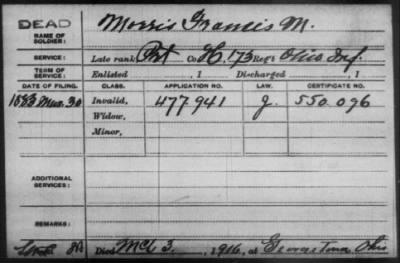 DEAD
NAME OF SOLDIER: Morris Francis M.
SERVICE: Late rank Pvt Co H. 173 Reg't Ohio Inf.
TERM OF SERVICE: Enlisted , 1 Discharged , 1
DATE OF FILING. CLASS. APPLICATION NO. LAW. CERTIFICATE NO.
1883 Mar. 30 Invalid, 477.941 J. 550.096
Widow,
Minor,
ADDITIONAL SERVICES:
REMARKS:
Died Mch 3, 1916, at Georgetown Ohio